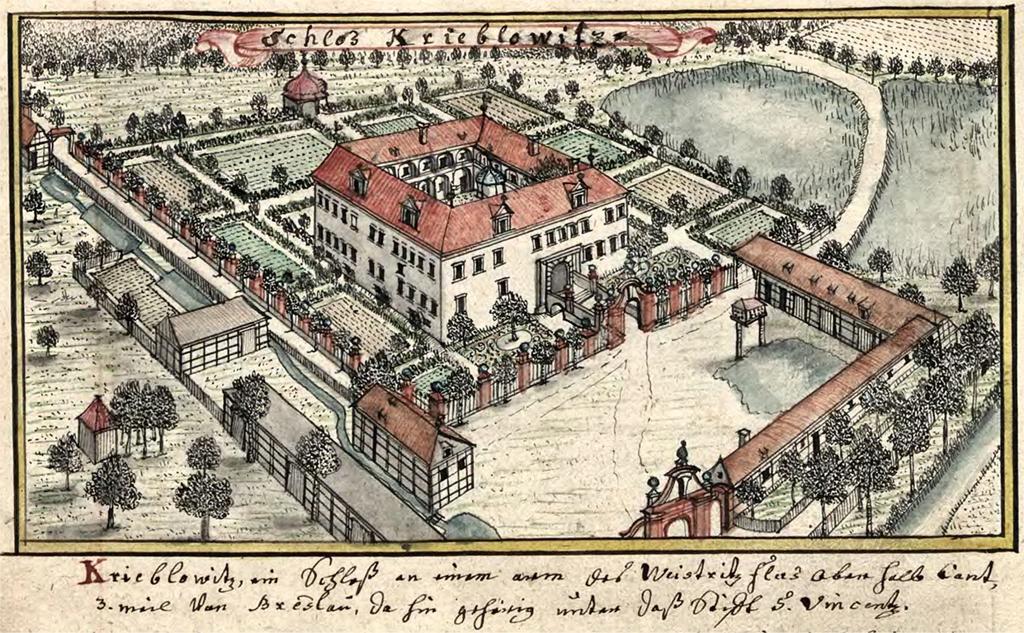 Schloß Krieblowitz
Krieblowitz, ein Schloß an einem arm des Weistritz flus oben halb Cant,
3. meil von Breslau, da hin gehörig unter daß Stifft S. Vincentz.